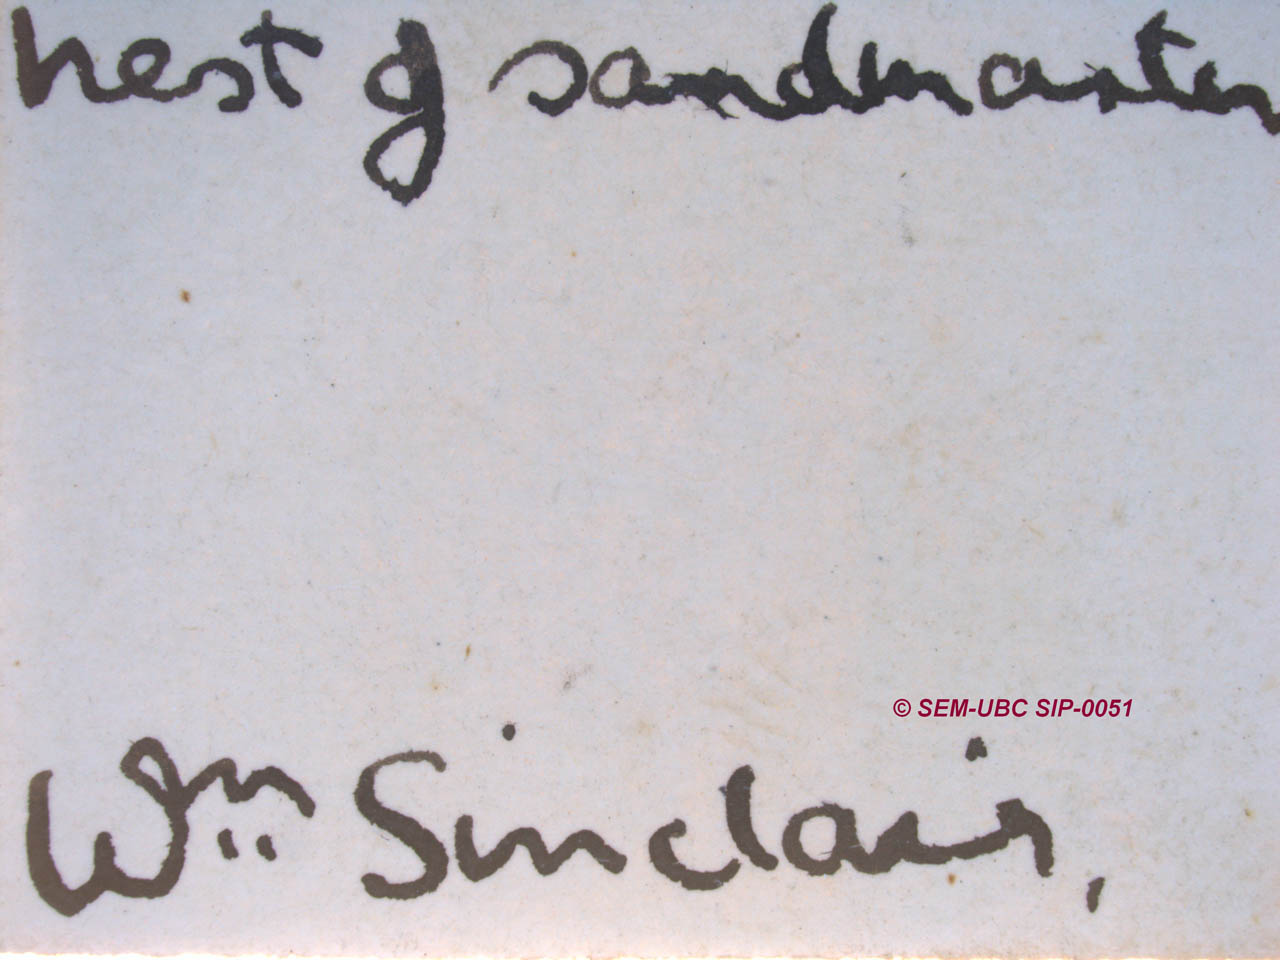 nest of sandmartin
© SEM-UBC SIP-0051
Wm Sinclair,